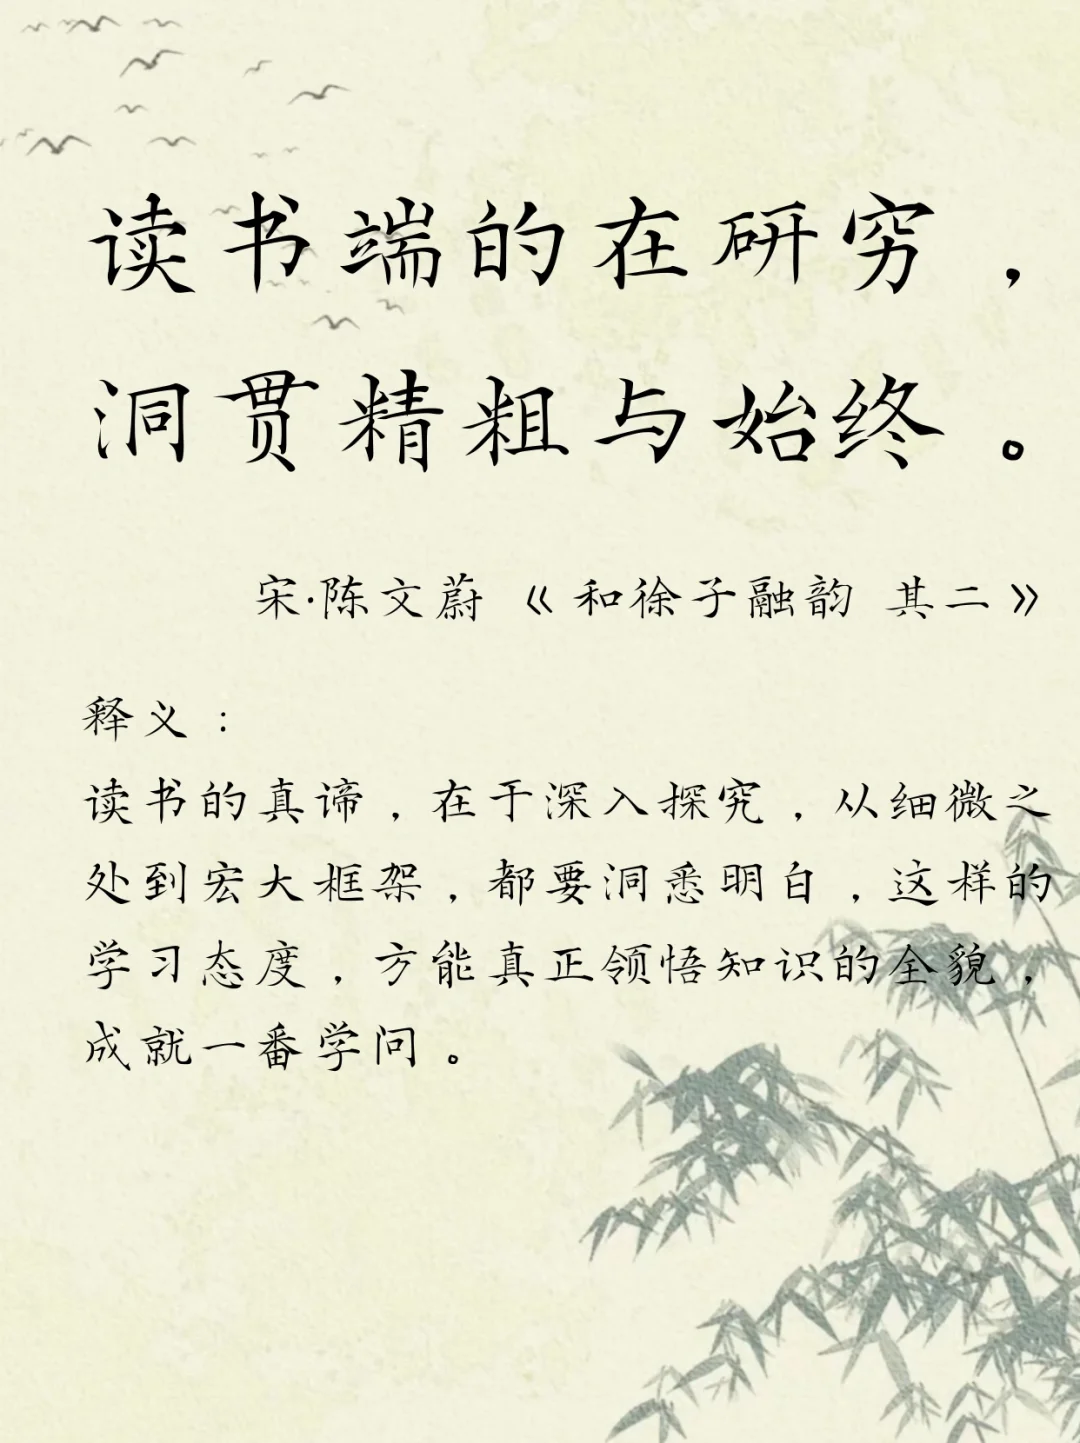 读书端的在研穷，
洞贯精粗与始终。
宋·陈文蔚《和徐子融韵 其二》
释义：
读书的真谛，在于深入探究，从细微之
处到宏大框架，都要洞悉明白，这样的
学习态度，方能真正领悟知识的全貌，
成就一番学问。